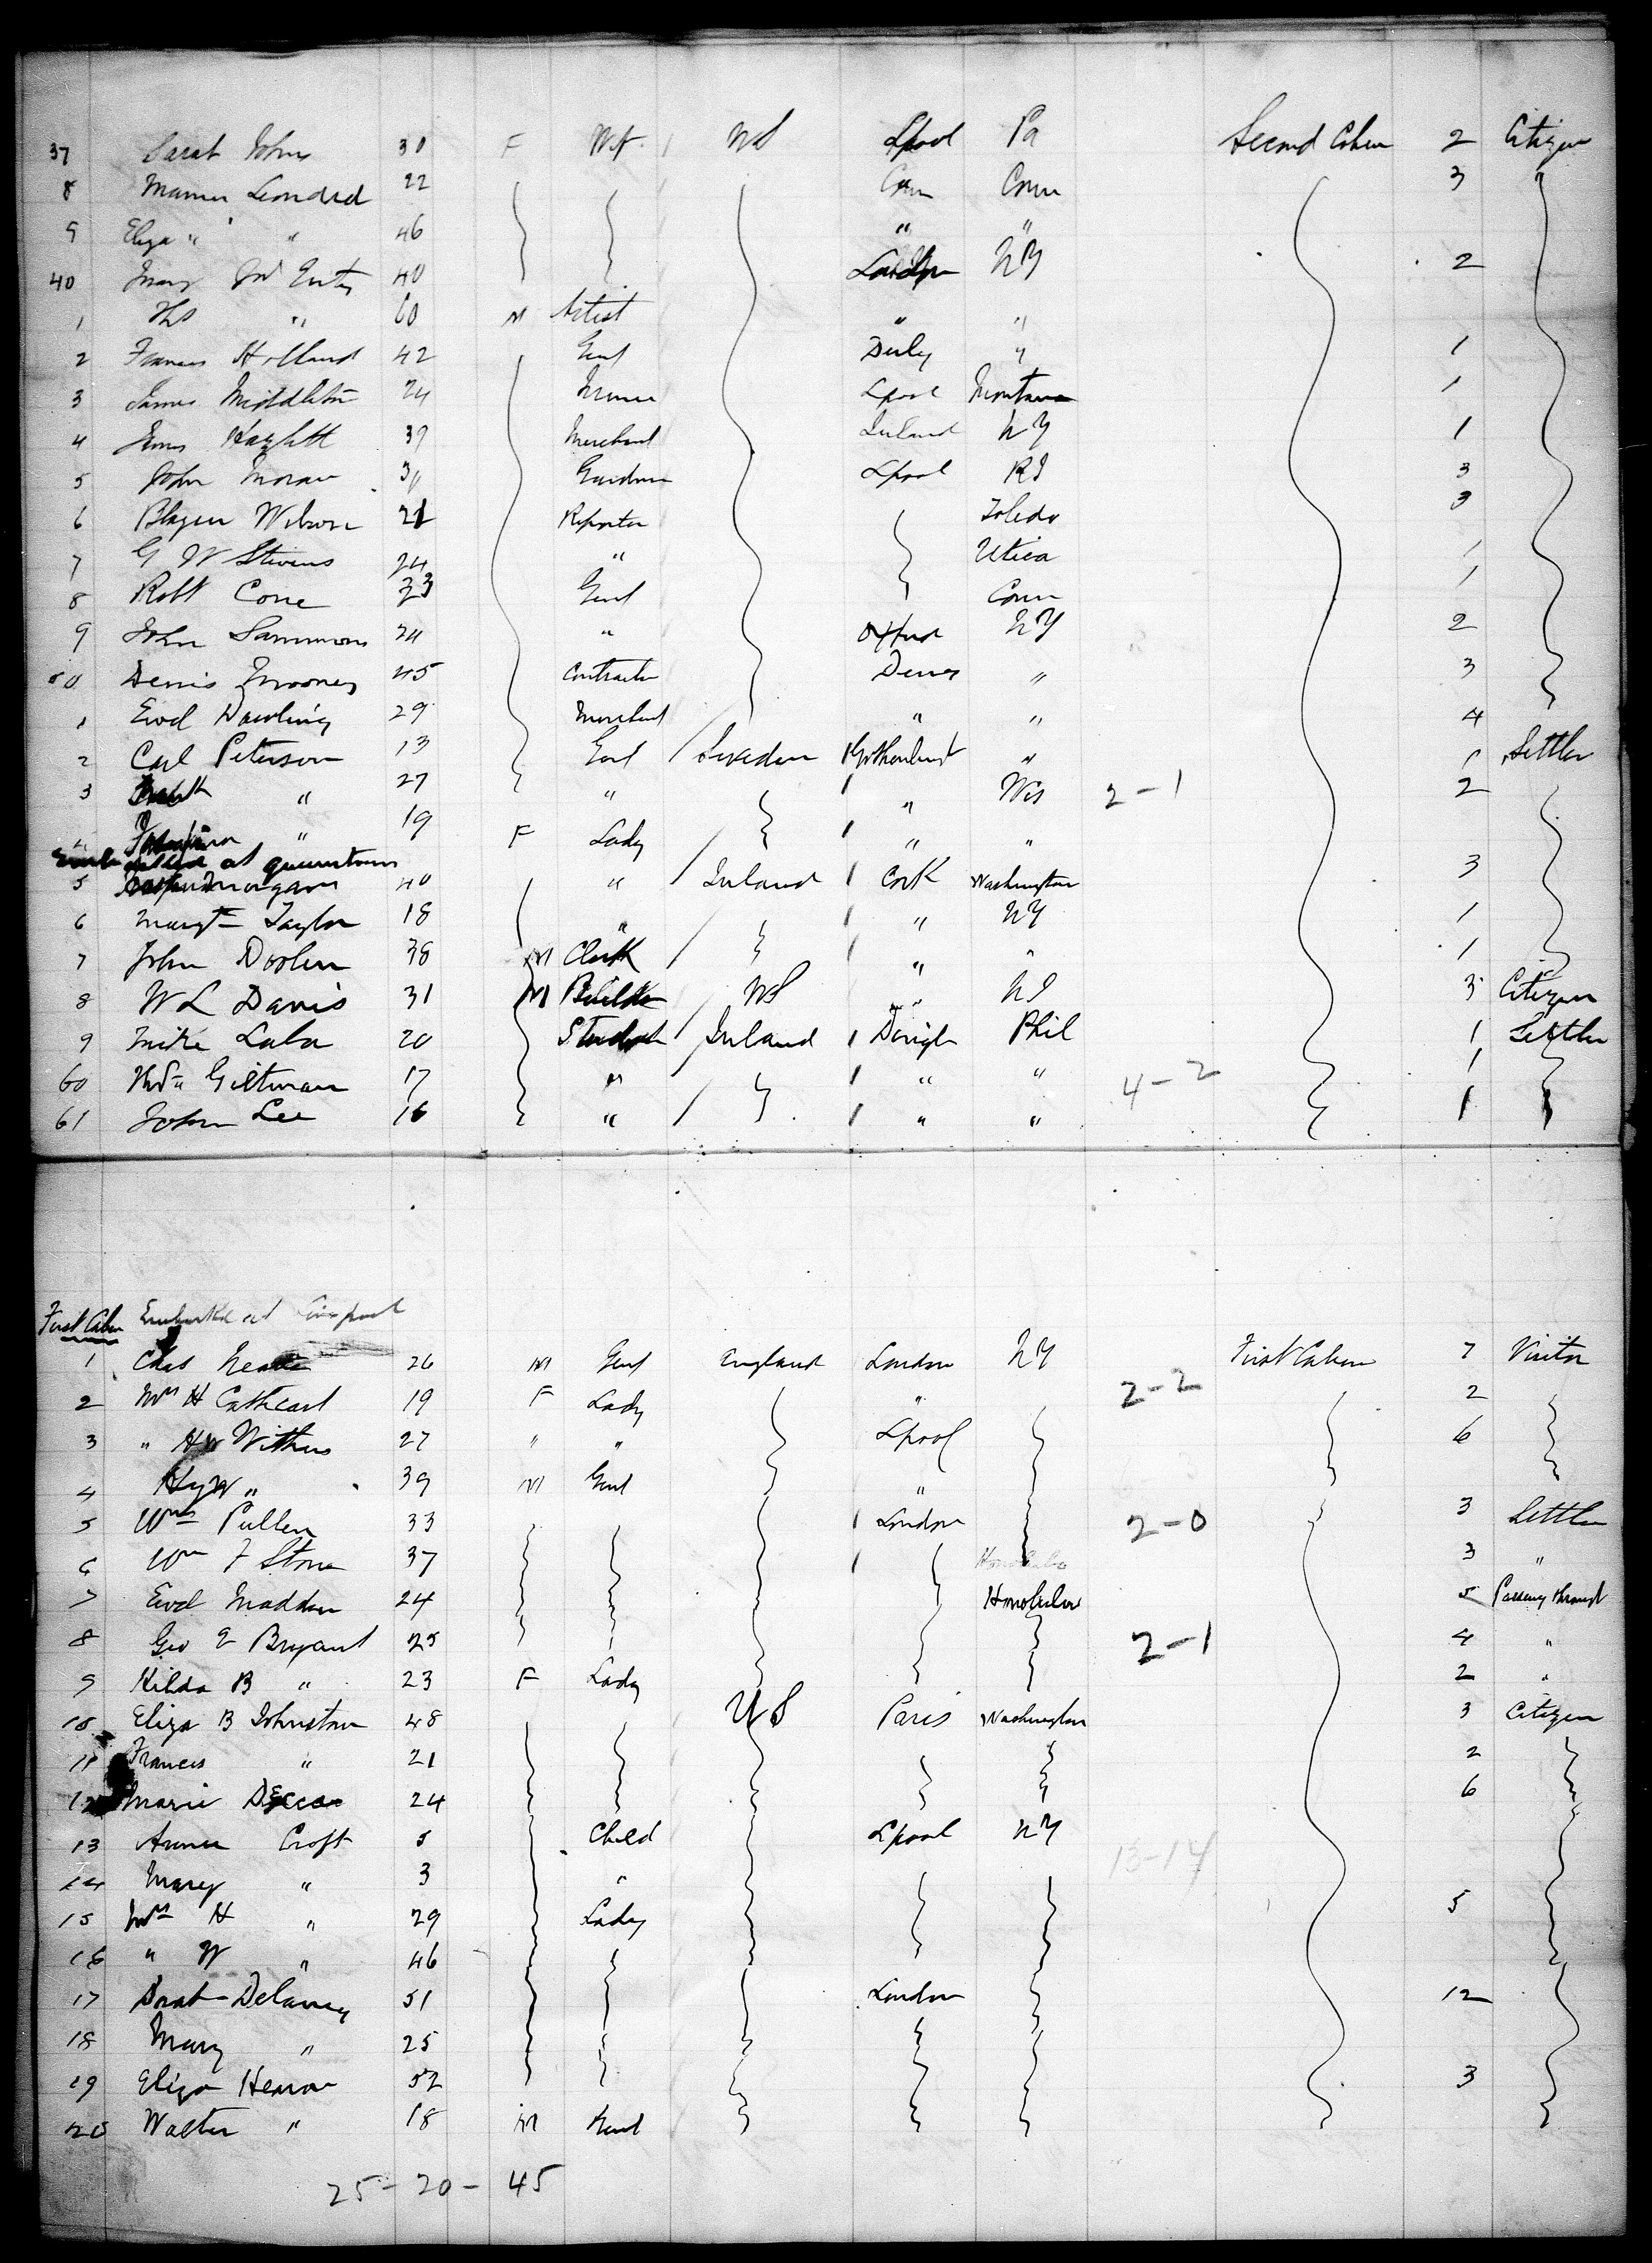 37 Sarah Johns 30 F Wf US Lpool Pa Second Cabin 2 Citizen
8 Leonard 22 Conn Conn 3 "
9 Eliza " " 46 " "
40 Mary 40 London NY 2
1 Ths " 60 M Artist " "
2 Frances Holland 42 Gent " 1
3 James Middleton 24 Lpool Montana 1
4 James Hazlett 39 Merchant Ireland NY 1
5 John Moran Gardner Lpool RI 3
6 Wilson 21 Reporter Toledo 3
7 G W Stevens 24 " Utica 1
8 Robt Cone 23 Gent Conn 1
9 John Sammons 24 " Oxford NY 2
50 Denis Mooney 45 Contractor " 3
1 Ewd Dowling 29 Merchant " " 4
2 Carl Peterson 13 Gent Sweden Gothenburg " 1 Settler
3 " 27 " " Wis 2-1 2
" 19 F Lady " "
Embarked at Queenstown
5 Morgan 40 " Ireland Cork Washington 3
6 Margt Taylor 18 " " NY 1
7 John Doolen 38 M Clerk " " 1
8 W L Davis 31 M Builder US " 3 Citizen
9 Mike Laba 20 Student Ireland Phil 1 Settler
60 Giltman 17 " " " 4-2 1
61 John Lee 16 " " " 1
First Cabin Embarked at Liverpool
1 Chas 26 M Gent England London NY First Cabin 7 Visitor
2 Mrs H Cathcart 19 F Lady " 2-2 2
3 " HW Withers 27 " " Lpool 6
4 Hy W " 39 M Gent "
5 Wm Pullen 33 London 2-0 3 Settler
6 Wm F Stone 37 Honolulu 3 "
7 Ewd Madden 24 Honolulu 5 Passing through
8 Geo E Bryant 25 2-1 4 "
9 Hilda B " 23 F Lady 2 "
10 Eliza B Johnston 48 US Paris Washington 3 Citizen
11 Frances " 21 2
12 Marie 24 6
13 Croft 5 Child Lpool NY 13-14
14 Mary " 3 "
15 Mrs H " 29 Lady 5
16 " W " 46
17 Delaney 51 London 12
18 Mary " 25
19 Eliza Hearon 52 3
20 Walter " 18 M Gent
25-20-45